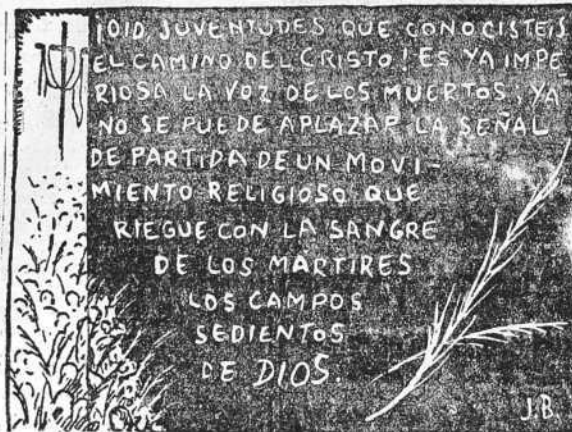 ¡OID, JUVENTUDES QUE CONOCISTEIS
EL CAMINO DEL CRISTO! ES YA IMPE-
RIOSA LA VOZ DE LOS MUERTOS; YA
NO SE PUEDE APLAZAR LA SEÑAL
DE PARTIDA DE UN MOVI-
MIENTO RELIGIOSO QUE
RIEGUE CON LA SANGRE
DE LOS MARTIRES
LOS CAMPOS
SEDIENTOS
DE DIOS.
J.B.